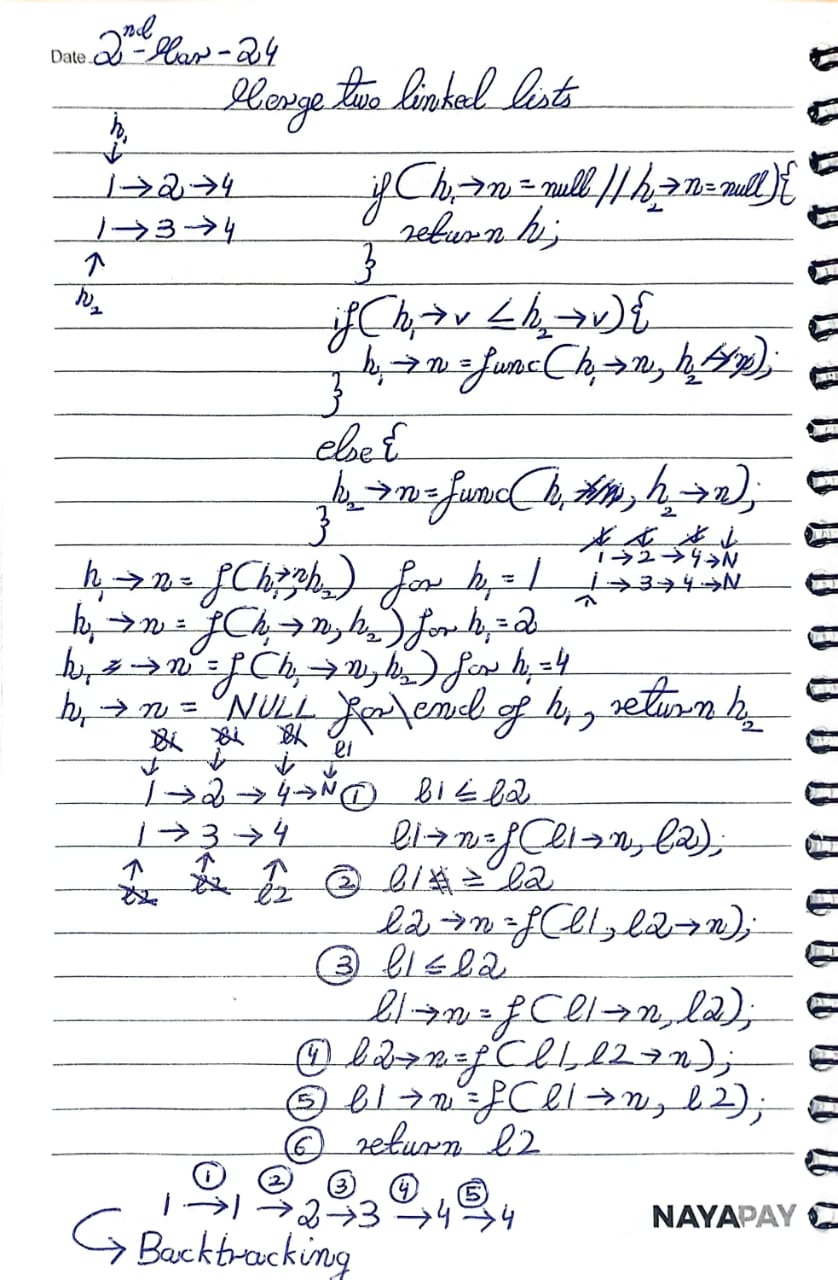 Date 2nd-Mar-24
Merge two linked lists
h₁
↓
1→2→4 if(h₁→n=null || h₂→n=null){
1→3→4 return h₁;
↑ }
h₂
if(h₁→v ≤ h₂→v){
h₁→n=func(h₁→n, h₂→n);
}
else{
h₂→n=func(h₁→n, h₂→n);
}
↓
1→2→4→N
h₁→n=f(h₁→n,h₂) for h₁=1 1→3→4→N
↑
h₁→n=f(h₁→n,h₂) for h₁=2
h₁→n=f(h₁→n,h₂) for h₁=4
h₁→n=NULL for end of h₁, return h₂
l1 l1 l1 l1
↓ ↓ ↓ ↓
1→2→4→N ① l1≤l2
1→3→4 l1→n=f(l1→n, l2);
↑ ↑ ↑
l2 l2 l2 ② l1 ≥ l2
l2→n=f(l1, l2→n);
③ l1≤l2
l1→n=f(l1→n, l2);
④ l2→n=f(l1, l2→n);
⑤ l1→n=f(l1→n, l2);
⑥ return l2
① ② ③ ④ ⑤
1→1→2→3→4→4
NAYAPAY
↪ Backtracking